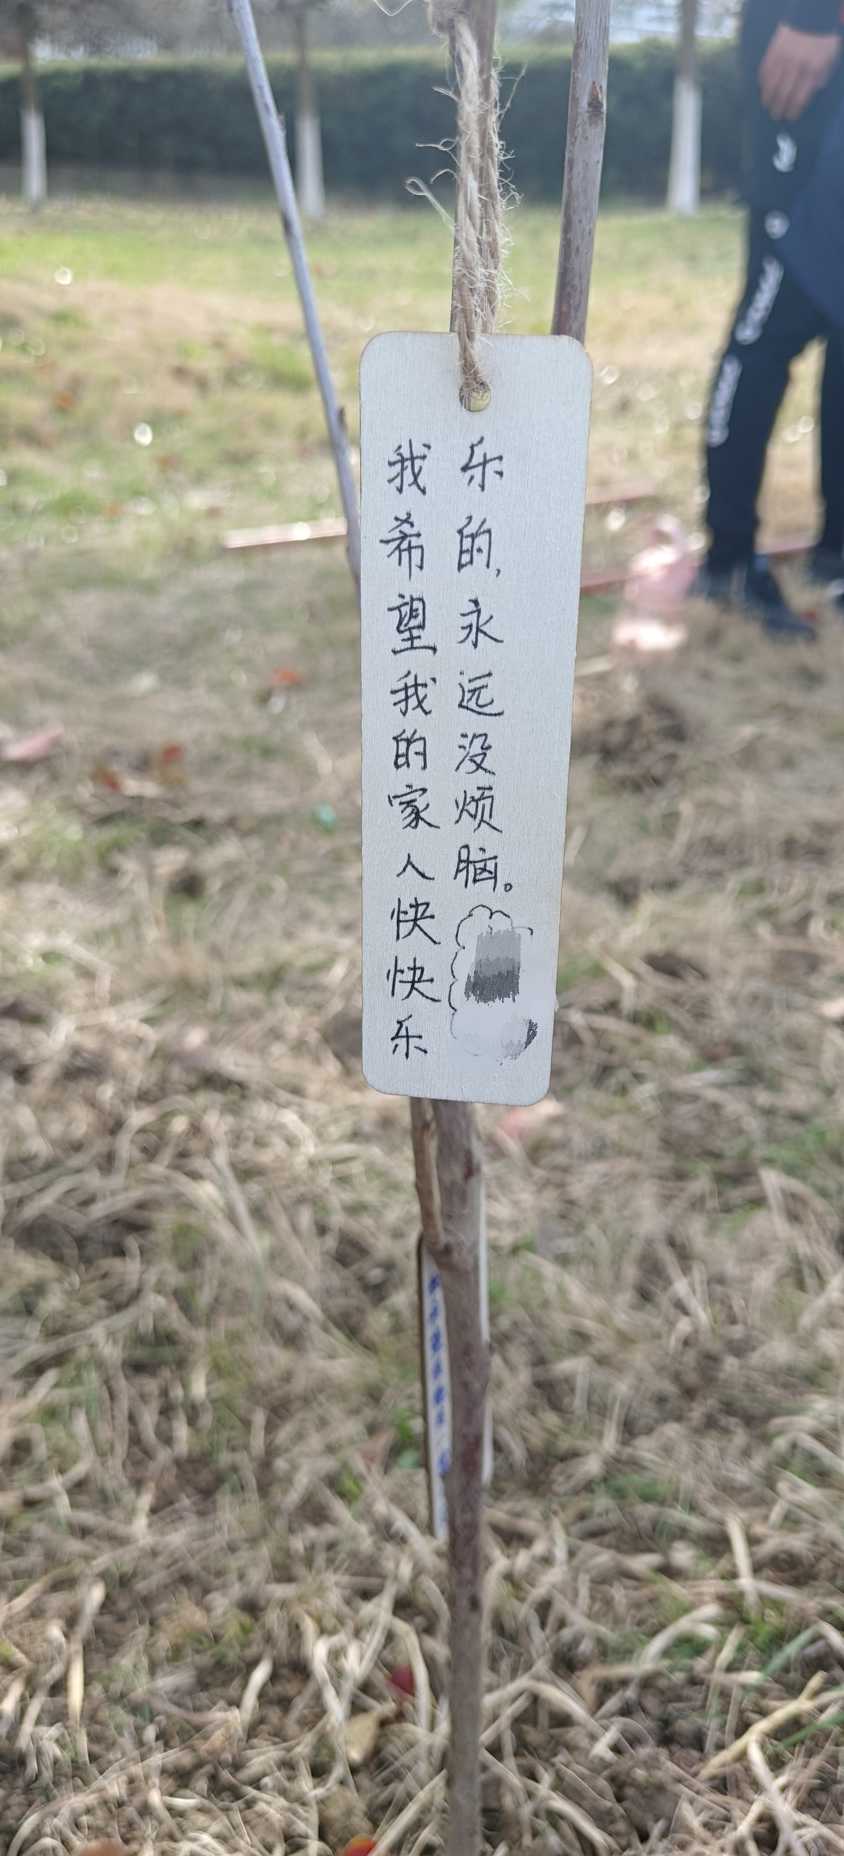 我希望我的家人快快乐
乐的,永远没烦脑。